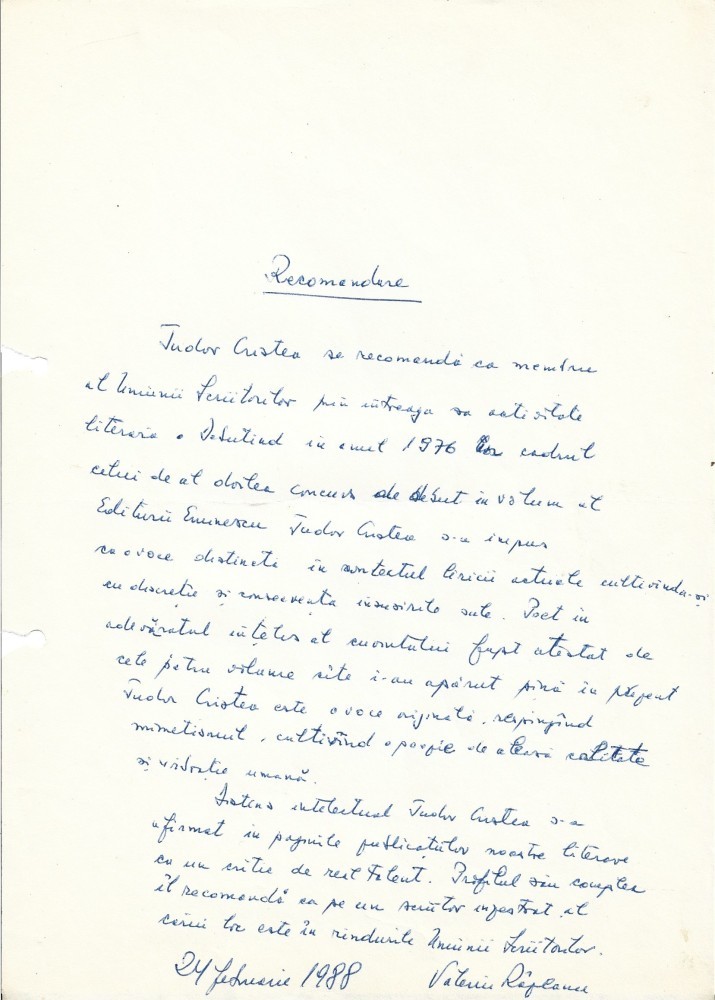 Recomandare
Tudor Cristea se recomandă ca membru
al Uniunii Scriitorilor prin întreaga sa activitate
literară. Debutînd în anul 1976 în cadrul
celui de al doilea concurs de debut în volum al
Editurii Eminescu Tudor Cristea s-a impus
ca o voce distinctă în contextul liricii actuale cultivîndu-și
cu discreție și consecvența însușirile sale. Poet în
adevăratul înțeles al cuvîntului fapt atestat de
cele patru volume cîte i-au apărut pînă în prezent
Tudor Cristea este o voce originală, respingînd
mimetismul, cultivînd o poezie de aleasă calitate
și vibrație umană.
intelectual Tudor Cristea s-a
afirmat în paginile publicațiilor noastre literare
ca un critic de real talent. Profilul său complex
îl recomandă ca pe un scriitor înzestrat al
cărui loc este în rîndurile Uniunii Scriitorilor.
24 februarie 1988 Valeriu Râpeanu